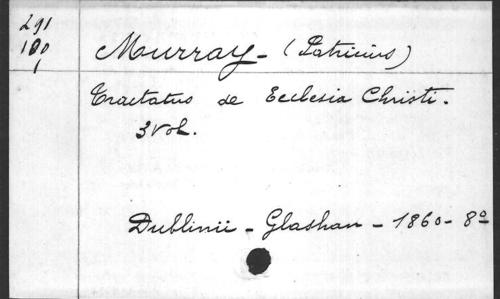 291
100
1
Murray - (Patricius)
Tractatus de Ecclesia Christi.
3 vol.
Dublinii - Glashan - 1860 - 8º